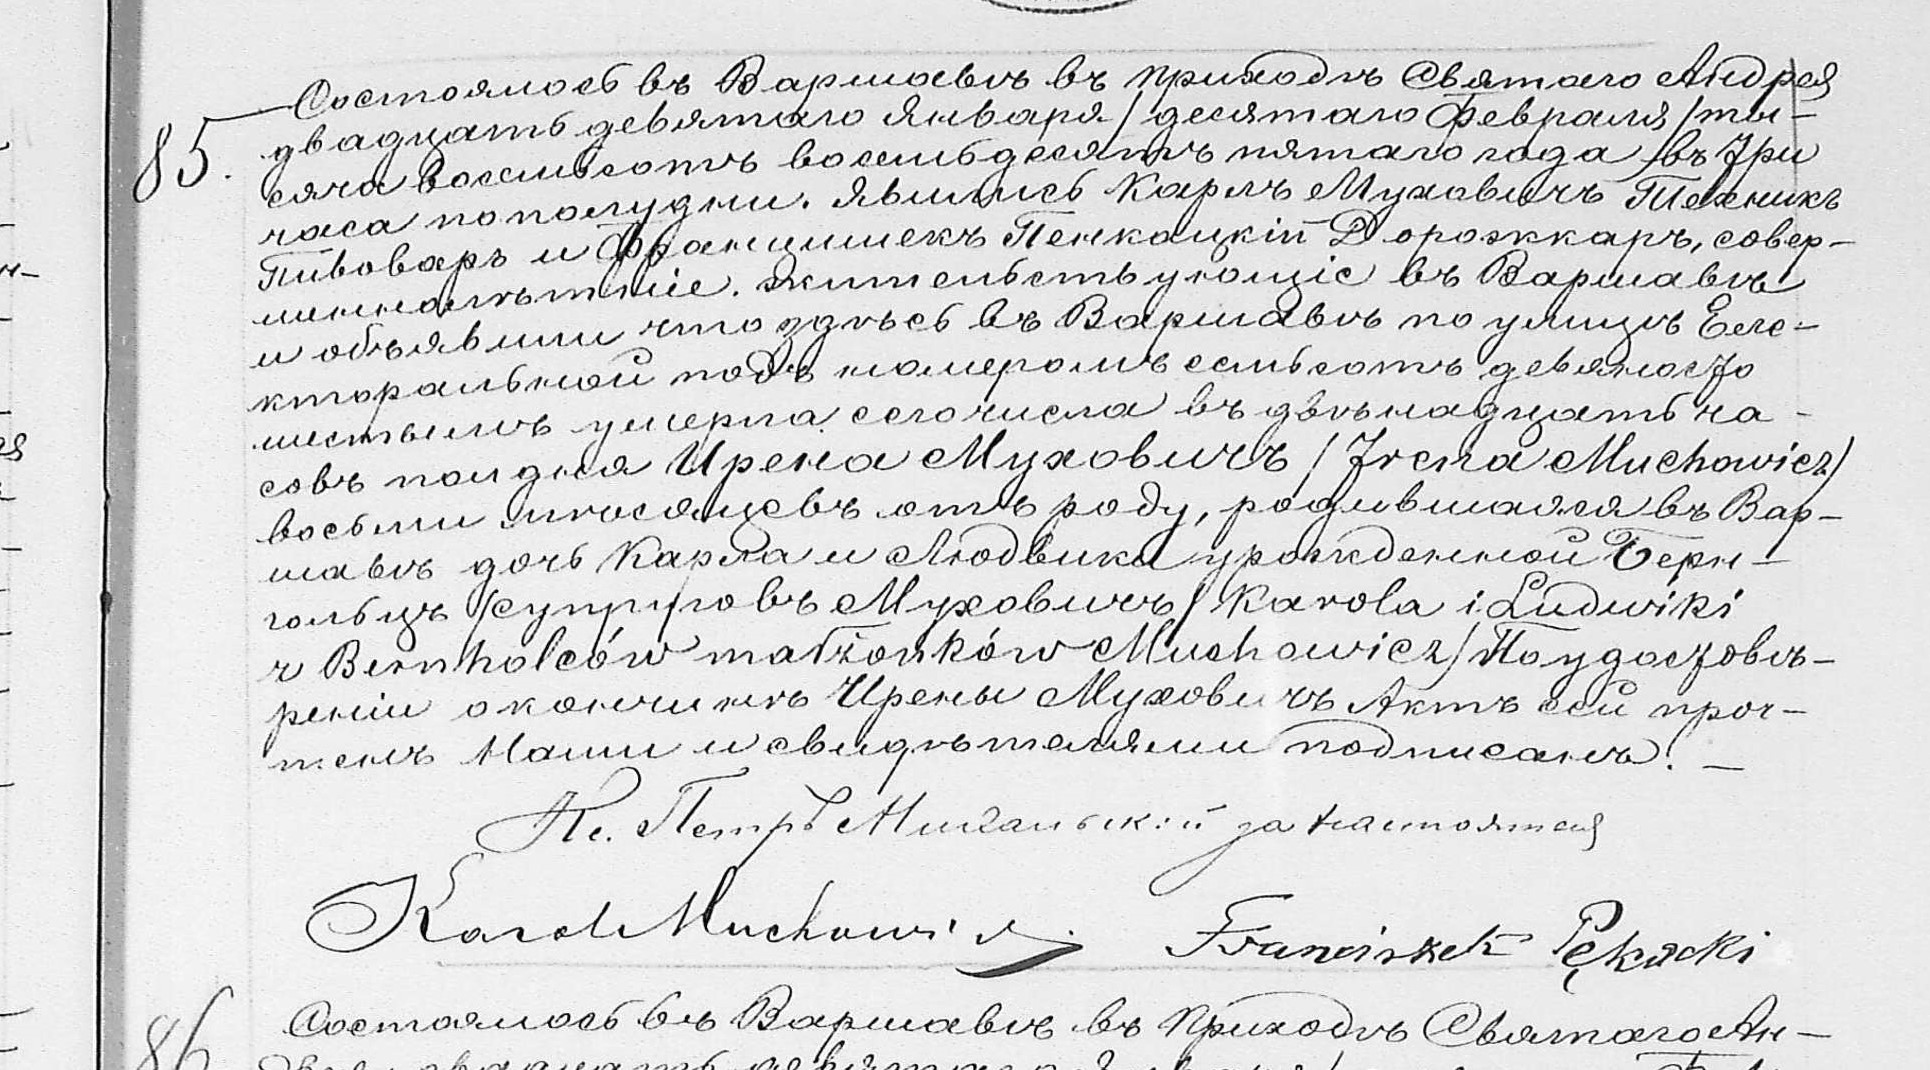 85.
Состоялось въ Варшавѣ въ приходѣ Святаго Андрея
двадцать девятаго Января / десятаго Февраля / ты-
сяча восемьсотъ восемьдесятъ пятаго года въ три
часа пополудни. Явились Карлъ Муховичъ Техникъ
Пивоваръ и Францишекъ Пенкацкій Дорожкаръ, совер-
шеннолѣтніе. жительствующіе въ Варшавѣ
и объявили что здѣсь въ Варшавѣ по улицѣ Еле-
кторальной подъ номеромъ семьсотъ девяносто
шестымъ умерла сего числа въ двѣнадцать ча-
совъ полдня Ирена Муховичъ / Irena Muchowicz /
восьми мѣсяцевъ отъ роду, родившаяся въ Вар-
шавѣ дочь Карла и Людвики урожденной Берн-
гольцъ супруговъ Муховичъ / Karola i Ludwiki
z Bernholców małżonków Muchowicz / По удостовѣ-
реніи о кончинѣ Ирены Муховичъ Актъ сей про-
тенъ Нами и свидѣтелями подписанъ. —
Кс. Петръ за настоятеля
Karol Muchowicz Franciszek Pękacki
86
Состоялось въ Варшавѣ въ Приходѣ Святаго Ан-